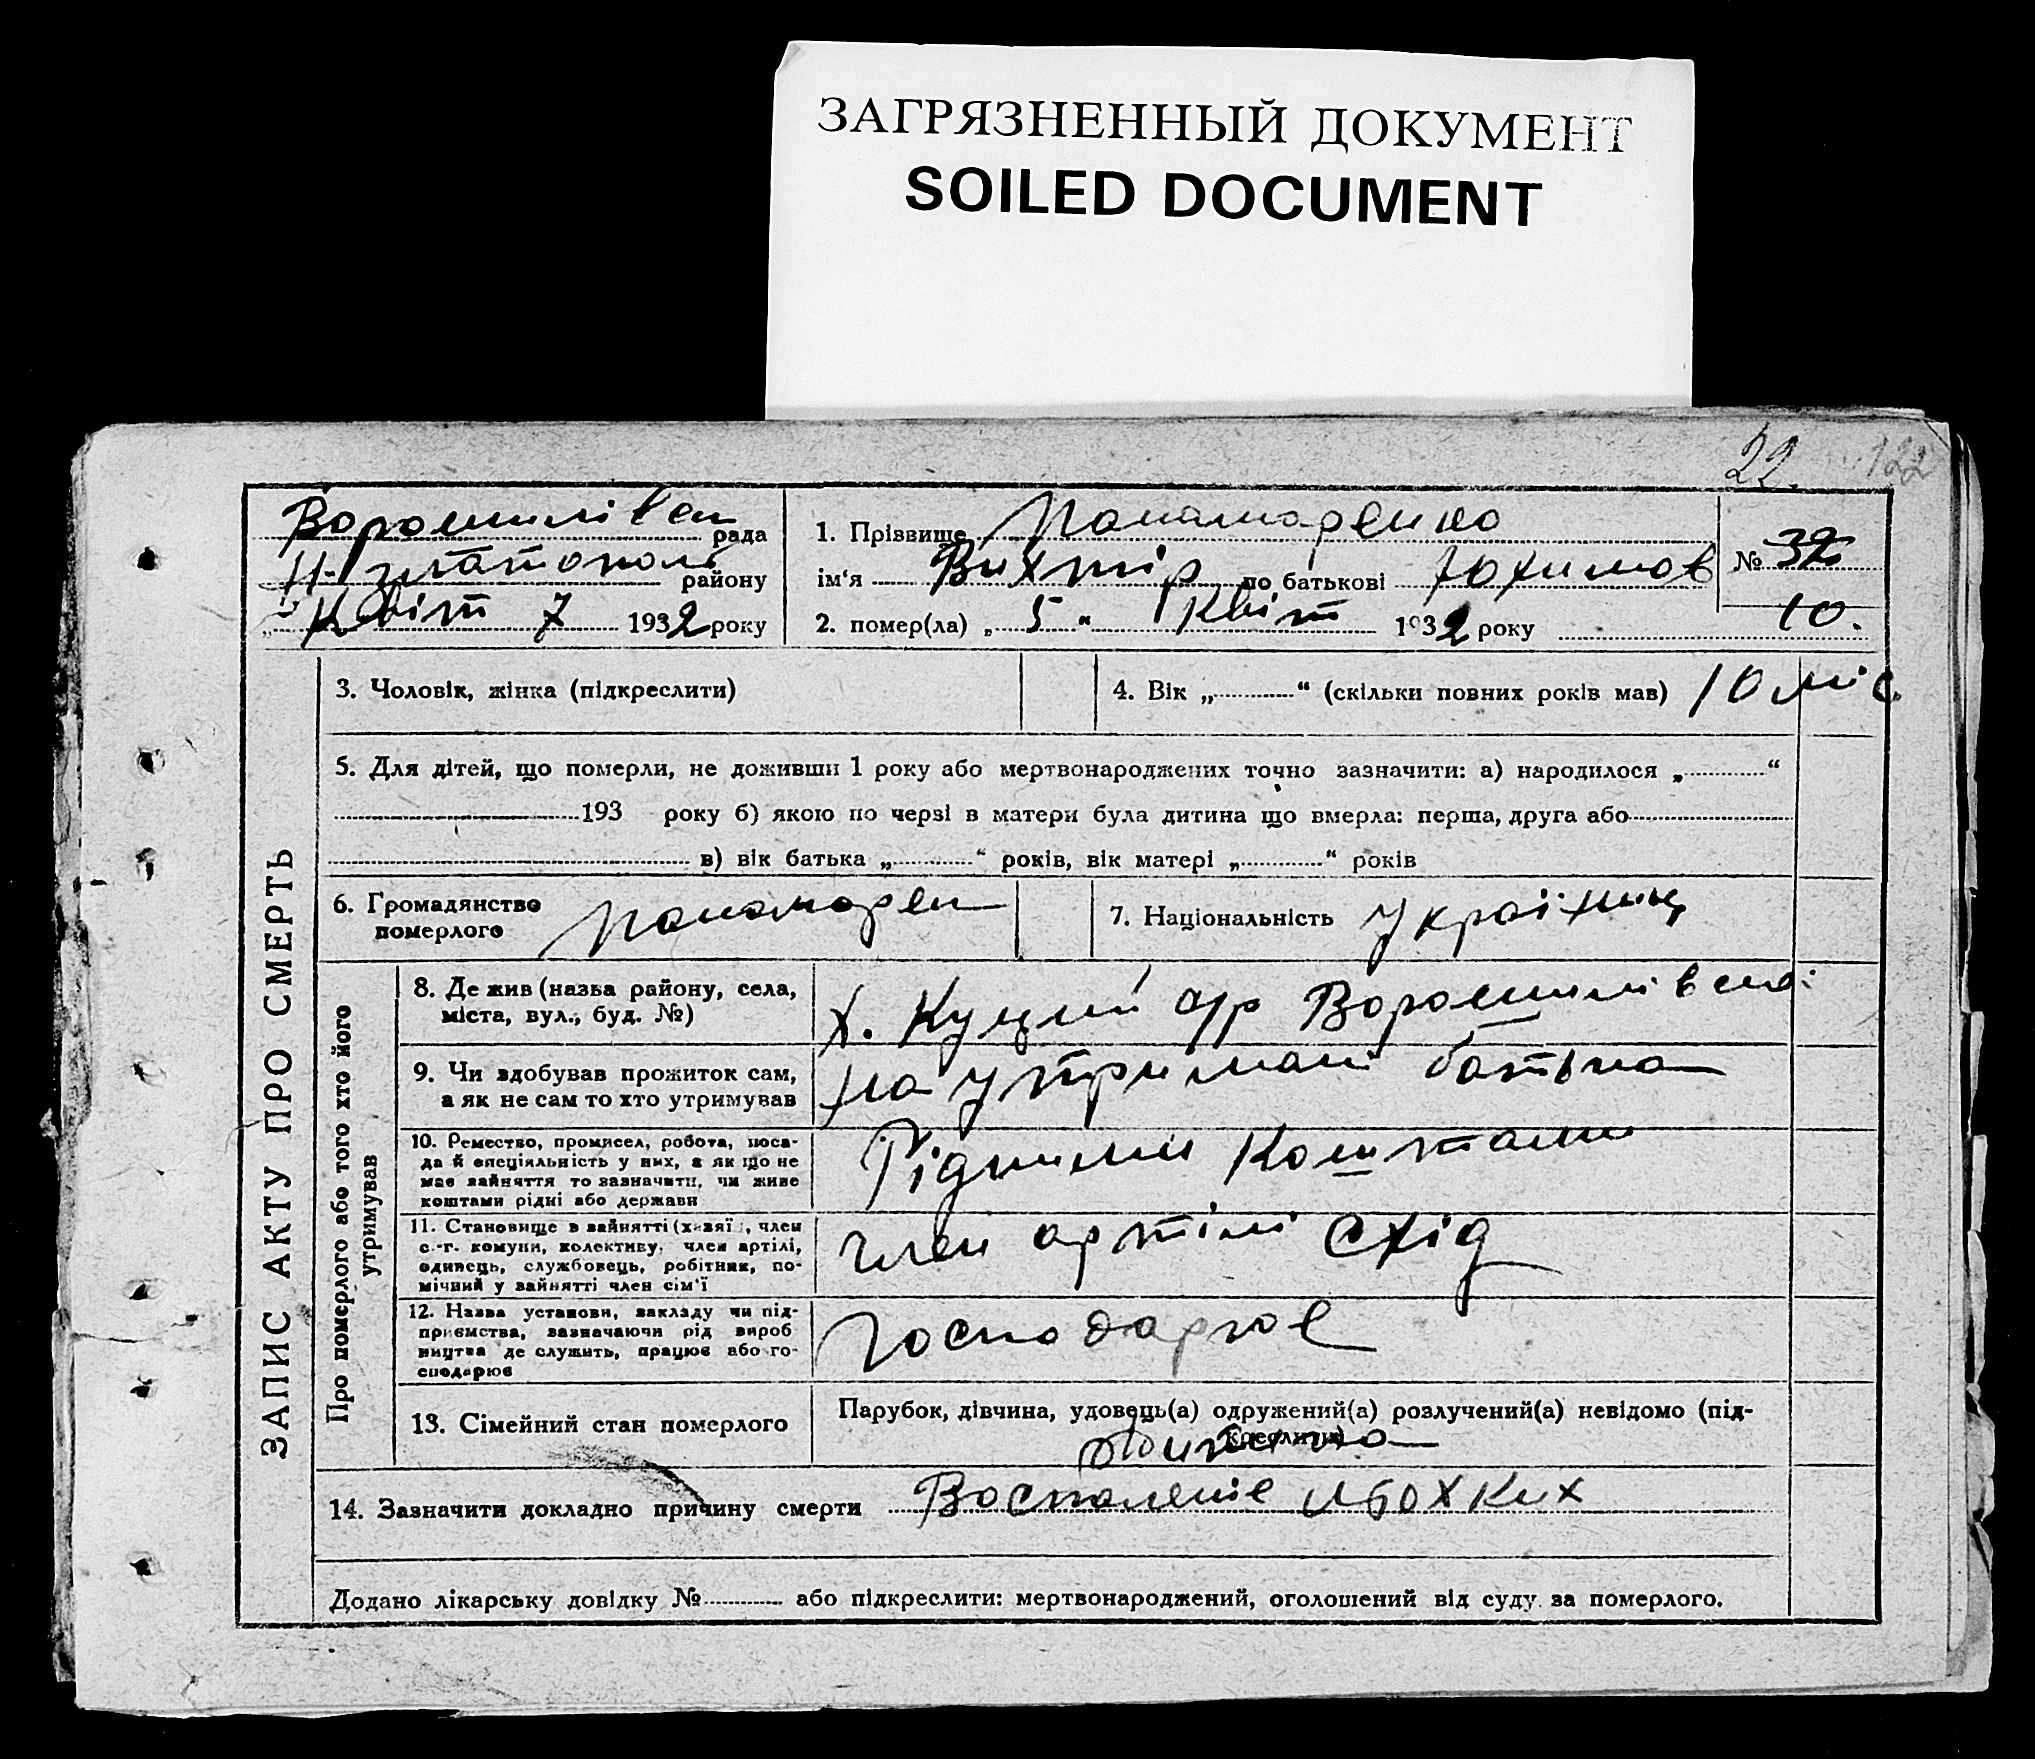 ЗАГРЯЗНЕННЫЙ ДОКУМЕНТ
SOILED DOCUMENT
22. 122
Ворошилівськ рада
Н-Златополь району
„ Квіт 7 1932 року
1. Прізвище Панамаренко
ім‘я Вихтір по батькові Юхимов
2. помер(ла) „ 5 “ Квіт 1932 року
№ 32
10.
ЗАПИС АКТУ ПРО СМЕРТЬ
3. Чоловік, жінка (підкреслити)
4. Вік „ “ (скільки повних років мав) 10 міс.
5. Для дітей, що померли, не доживши 1 року або мертвонароджених точно зазначити: а) народилося „ “
193 року б) якою по черзі в матери була дитина що вмерла: перша, друга або
в) вік батька „ “ років, вік матері „ “ років
6. Громадянство
померлого Панамарен
7. Національність Україниц
Про померлого або того хто його
утримував
8. Де жив (назва району, села,
міста, вул., буд. №)
х. Куций с/р Ворошилівськ
9. Чи здобував прожиток сам,
а як не сам то хто утримував
на утримані батька
10. Ремество, промисел, робота, поса-
да й спеціяльність у них, а як що не
має зайняття то зазначити, чи живе
коштами рідні або держави
Рідними Коштами
11. Становище в зайнятті (хазяїн, член
с.-г. комуни, колективу, член артілі,
одинець, службовець, робітник, по-
мічний у зайнятті член сім‘ї
член артілі Схід
12. Назва установи, закладу чи під-
приємства, зазначаючи рід вироб
ництва де служить, працює або го-
сподарює
Господарює
13. Сімейний стан померлого
Парубок, дівчина, удовець(а) одружений(а) розлучений(а) невідомо (під-
креслити)
дитина
14. Зазначити докладно причину смерти Воспаленіе льохких
Додано лікарську довідку № або підкреслити: мертвонароджений, оголошений від суду за померлого.